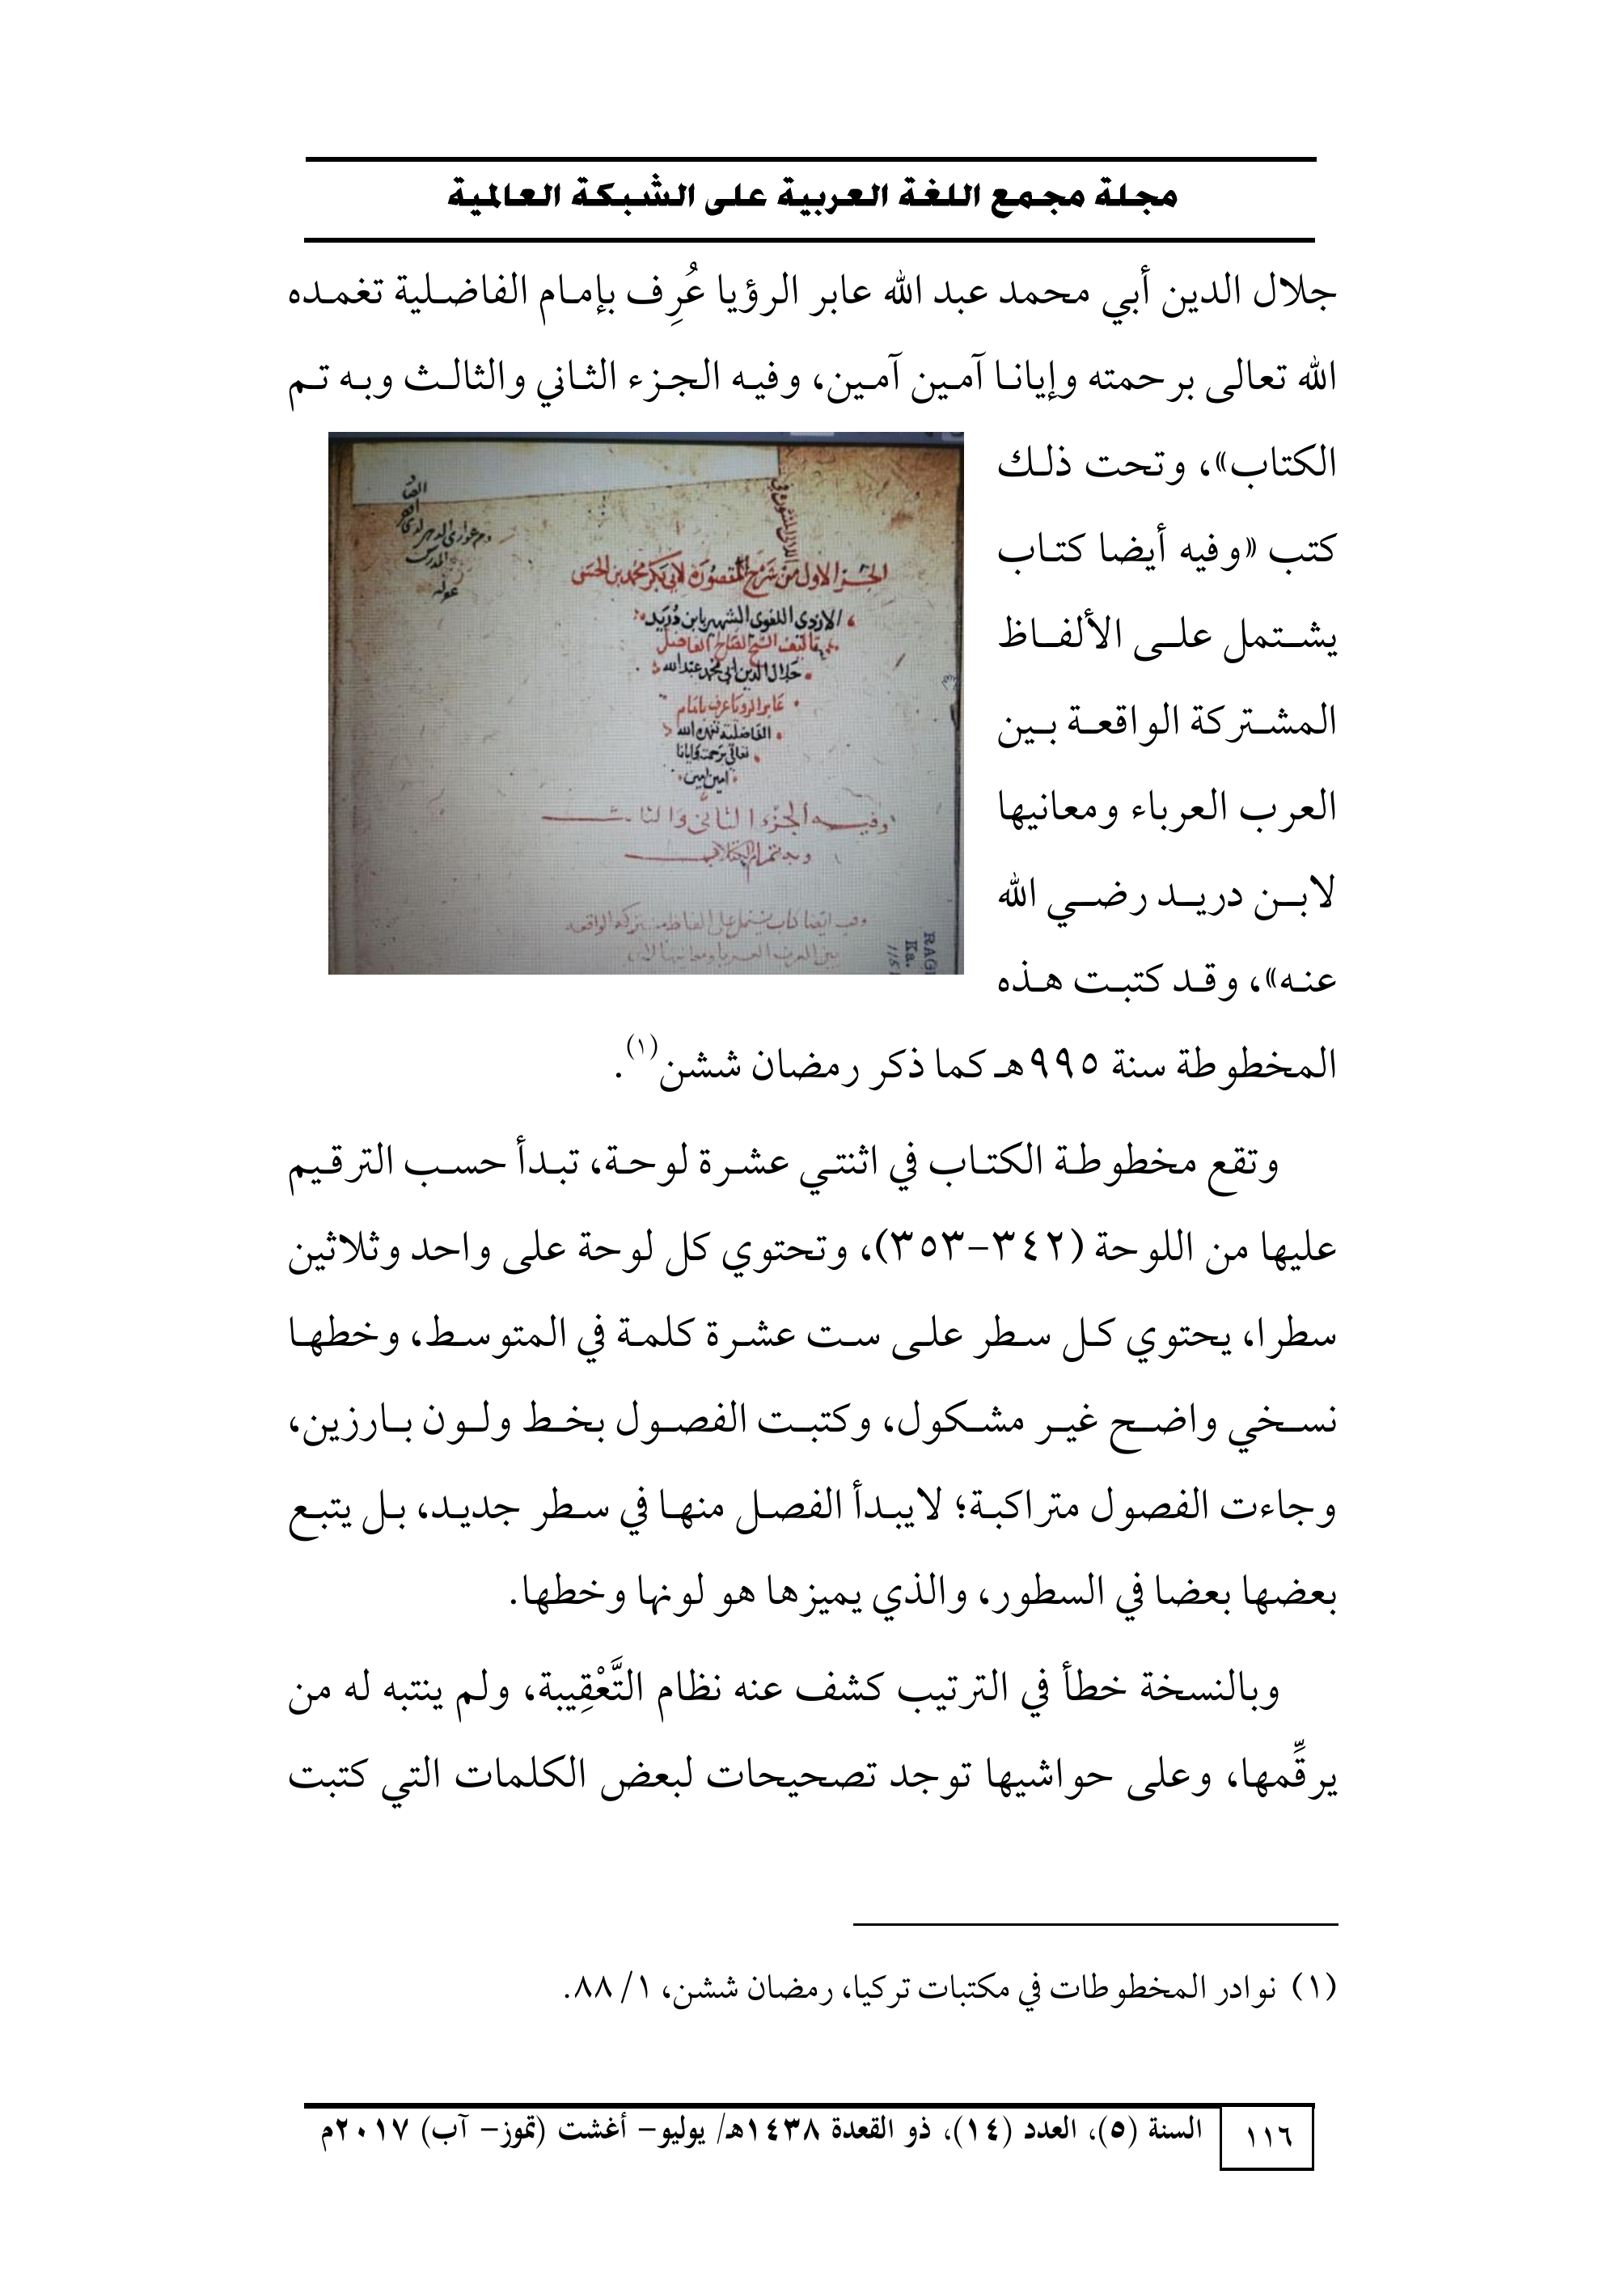 مجلة مجمع اللغة العربية على الشبكة العالمية
جلال الدين أبي محمد عبد الله عابر الرؤيا عُرِف بإمام الفاضلية تغمده
الله تعالى برحمته وإيانا آمين آمين، وفيه الجزء الثاني والثالث وبه تم
الكتاب»، وتحت ذلك
كتب «وفيه أيضا كتاب
يشتمل على الألفاظ
المشتركة الواقعة بين
العرب العرباء ومعانيها
لابن دريد رضي الله
عنه»، وقد كتبت هذه
الجزء الاول من شرح المقصورة لابي بكر محمد بن الحسن
الازدي اللغوي الشهير بابن دريد
تاليف الشيخ الصالح الفاضل
جلال الدين ابي محمد عبد الله
عابر الرويا عرف بامام
الفاضلية تغمده الله
تعالى برحمته وايانا
امين امين
وفيه الجزء الثاني والثالث
وبه تم الكتاب
وفيه ايضا كتاب يشتمل على الفاظ مشتركة الواقعة
بين العرب العربا ومعانيها
RAGI
Ka.
المخطوطة سنة ٩٩٥هـ كما ذكر رمضان ششن(١).
وتقع مخطوطة الكتاب في اثنتي عشرة لوحة، تبدأ حسب الترقيم
عليها من اللوحة (٣٤٢-٣٥٣)، وتحتوي كل لوحة على واحد وثلاثين
سطرا، يحتوي كل سطر على ست عشرة كلمة في المتوسط، وخطها
نسخي واضح غير مشكول، وكتبت الفصول بخط ولون بارزين،
وجاءت الفصول متراكبة؛ لايبدأ الفصل منها في سطر جديد، بل يتبع
بعضها بعضا في السطور، والذي يميزها هو لونها وخطها.
وبالنسخة خطأ في الترتيب كشف عنه نظام التَّعْقِيبة، ولم ينتبه له من
يرقِّمها، وعلى حواشيها توجد تصحيحات لبعض الكلمات التي كتبت
(١) نوادر المخطوطات في مكتبات تركيا، رمضان ششن، ١/ ٨٨.
١١٦
السنة (٥)، العدد (١٤)، ذو القعدة ١٤٣٨هـ/ يوليو- أغشت (تموز- آب) ٢٠١٧م